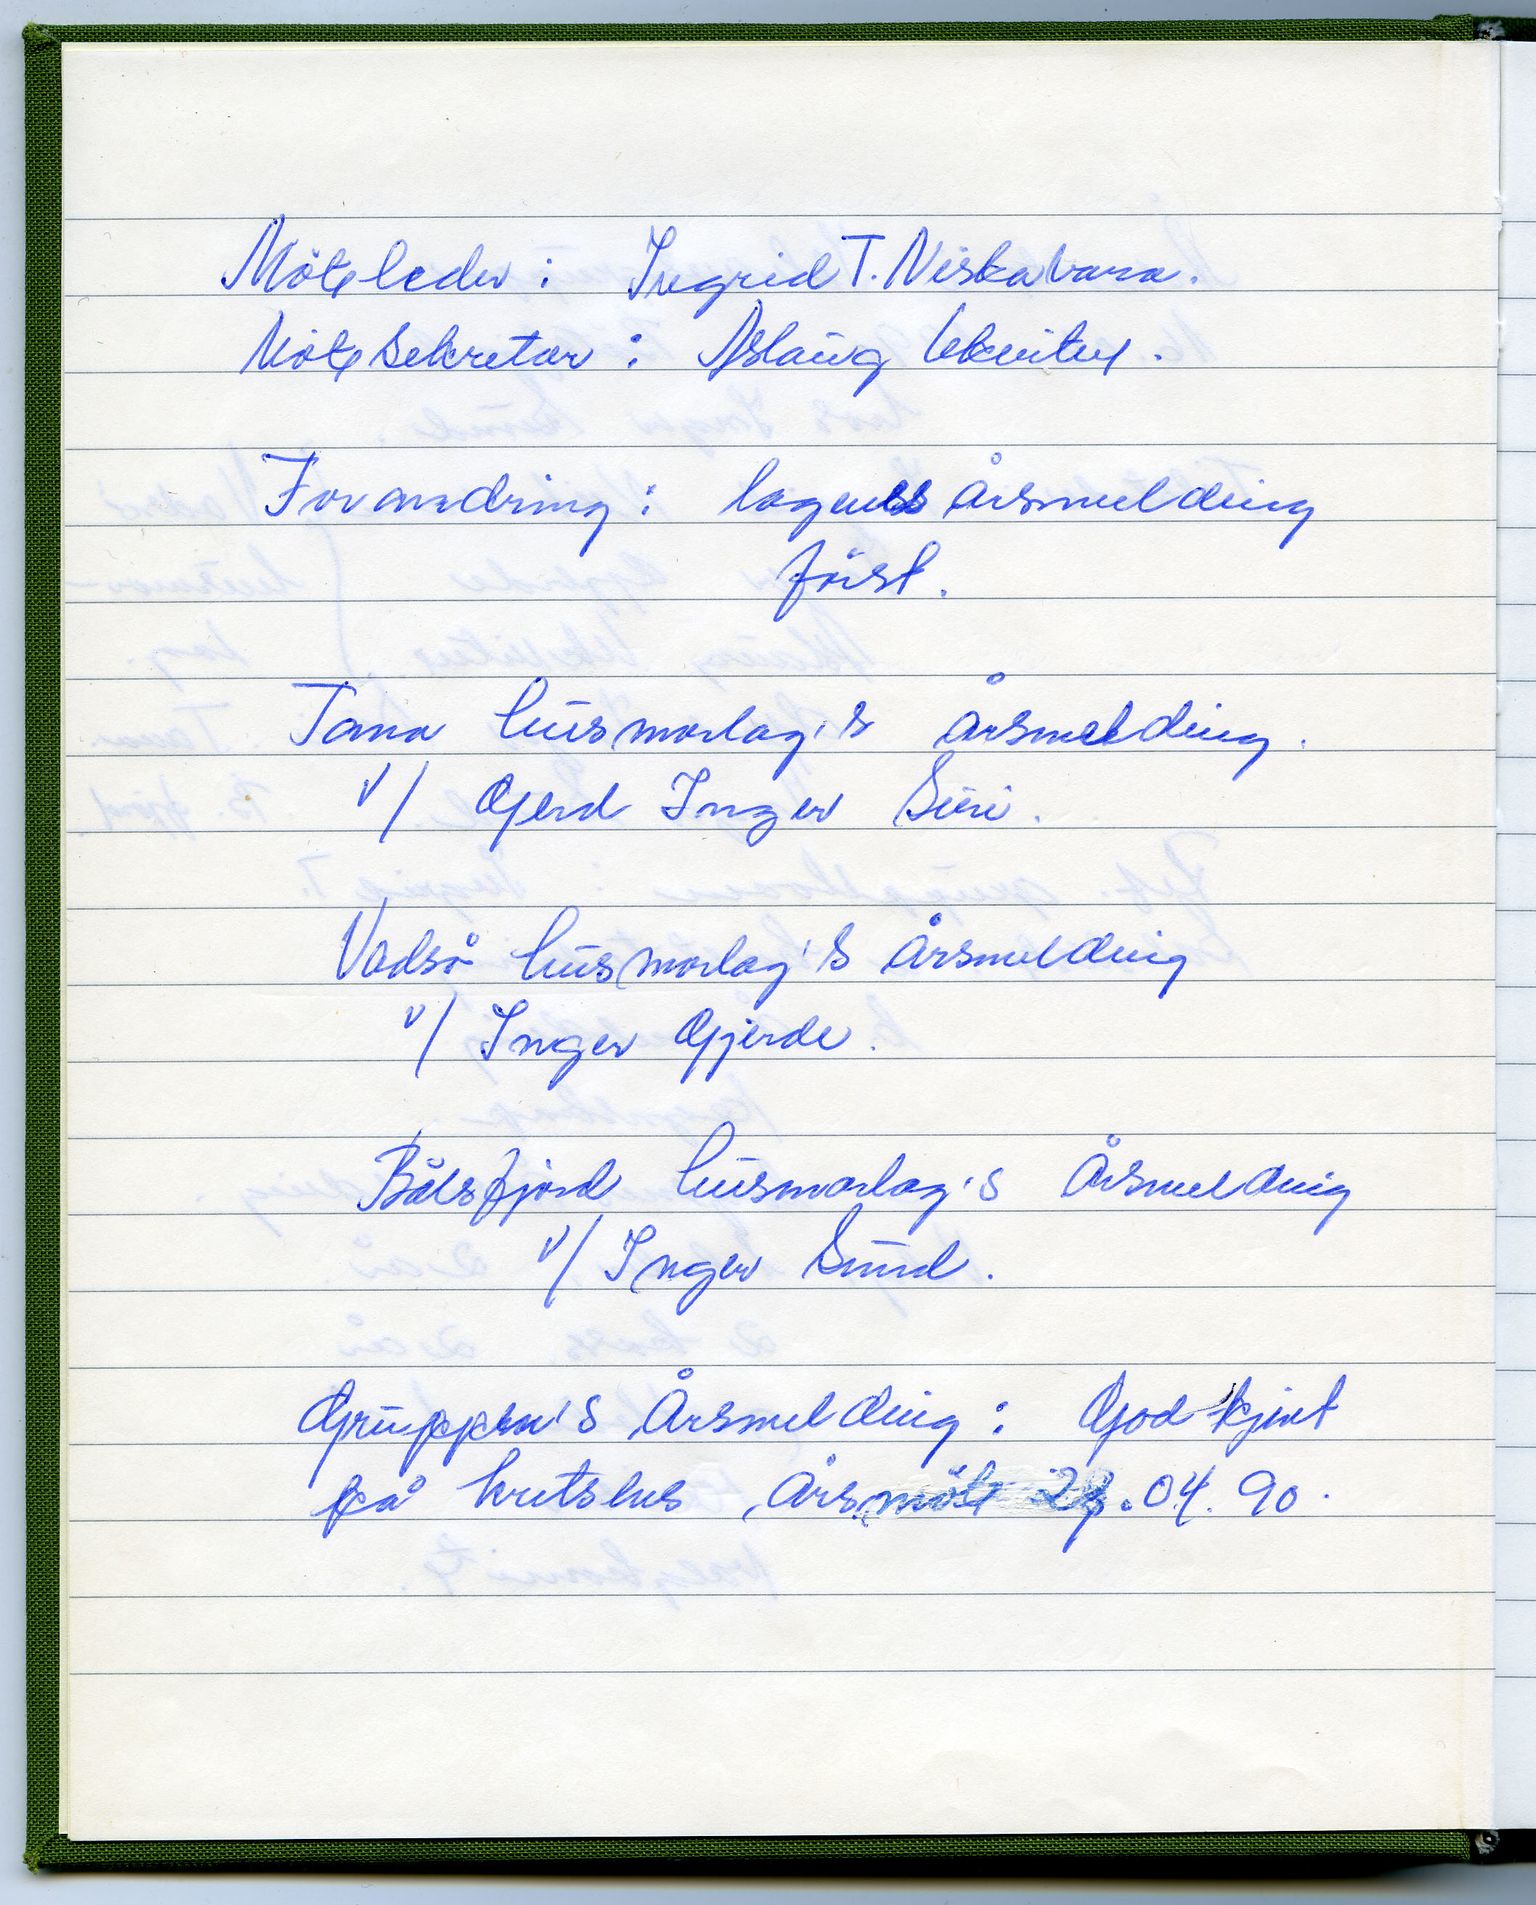 Möteleder: Ingrid T. Niskavara.
Mötesekretær: Aslaug Utsi
Forandring: lagenes Årsmelding
först.
Tana husmorlag's årsmelding.
v/ Gjerd Inger Siri.
Vadsö husmorlag's Årsmelding
v/ Inger Gjerde.
Båtsfjord husmorlag's Årsmelding
v/ Inger Sund.
Gruppen's Årsmelding: Godkjent
på kretsens Årsmöt 28.04.90.